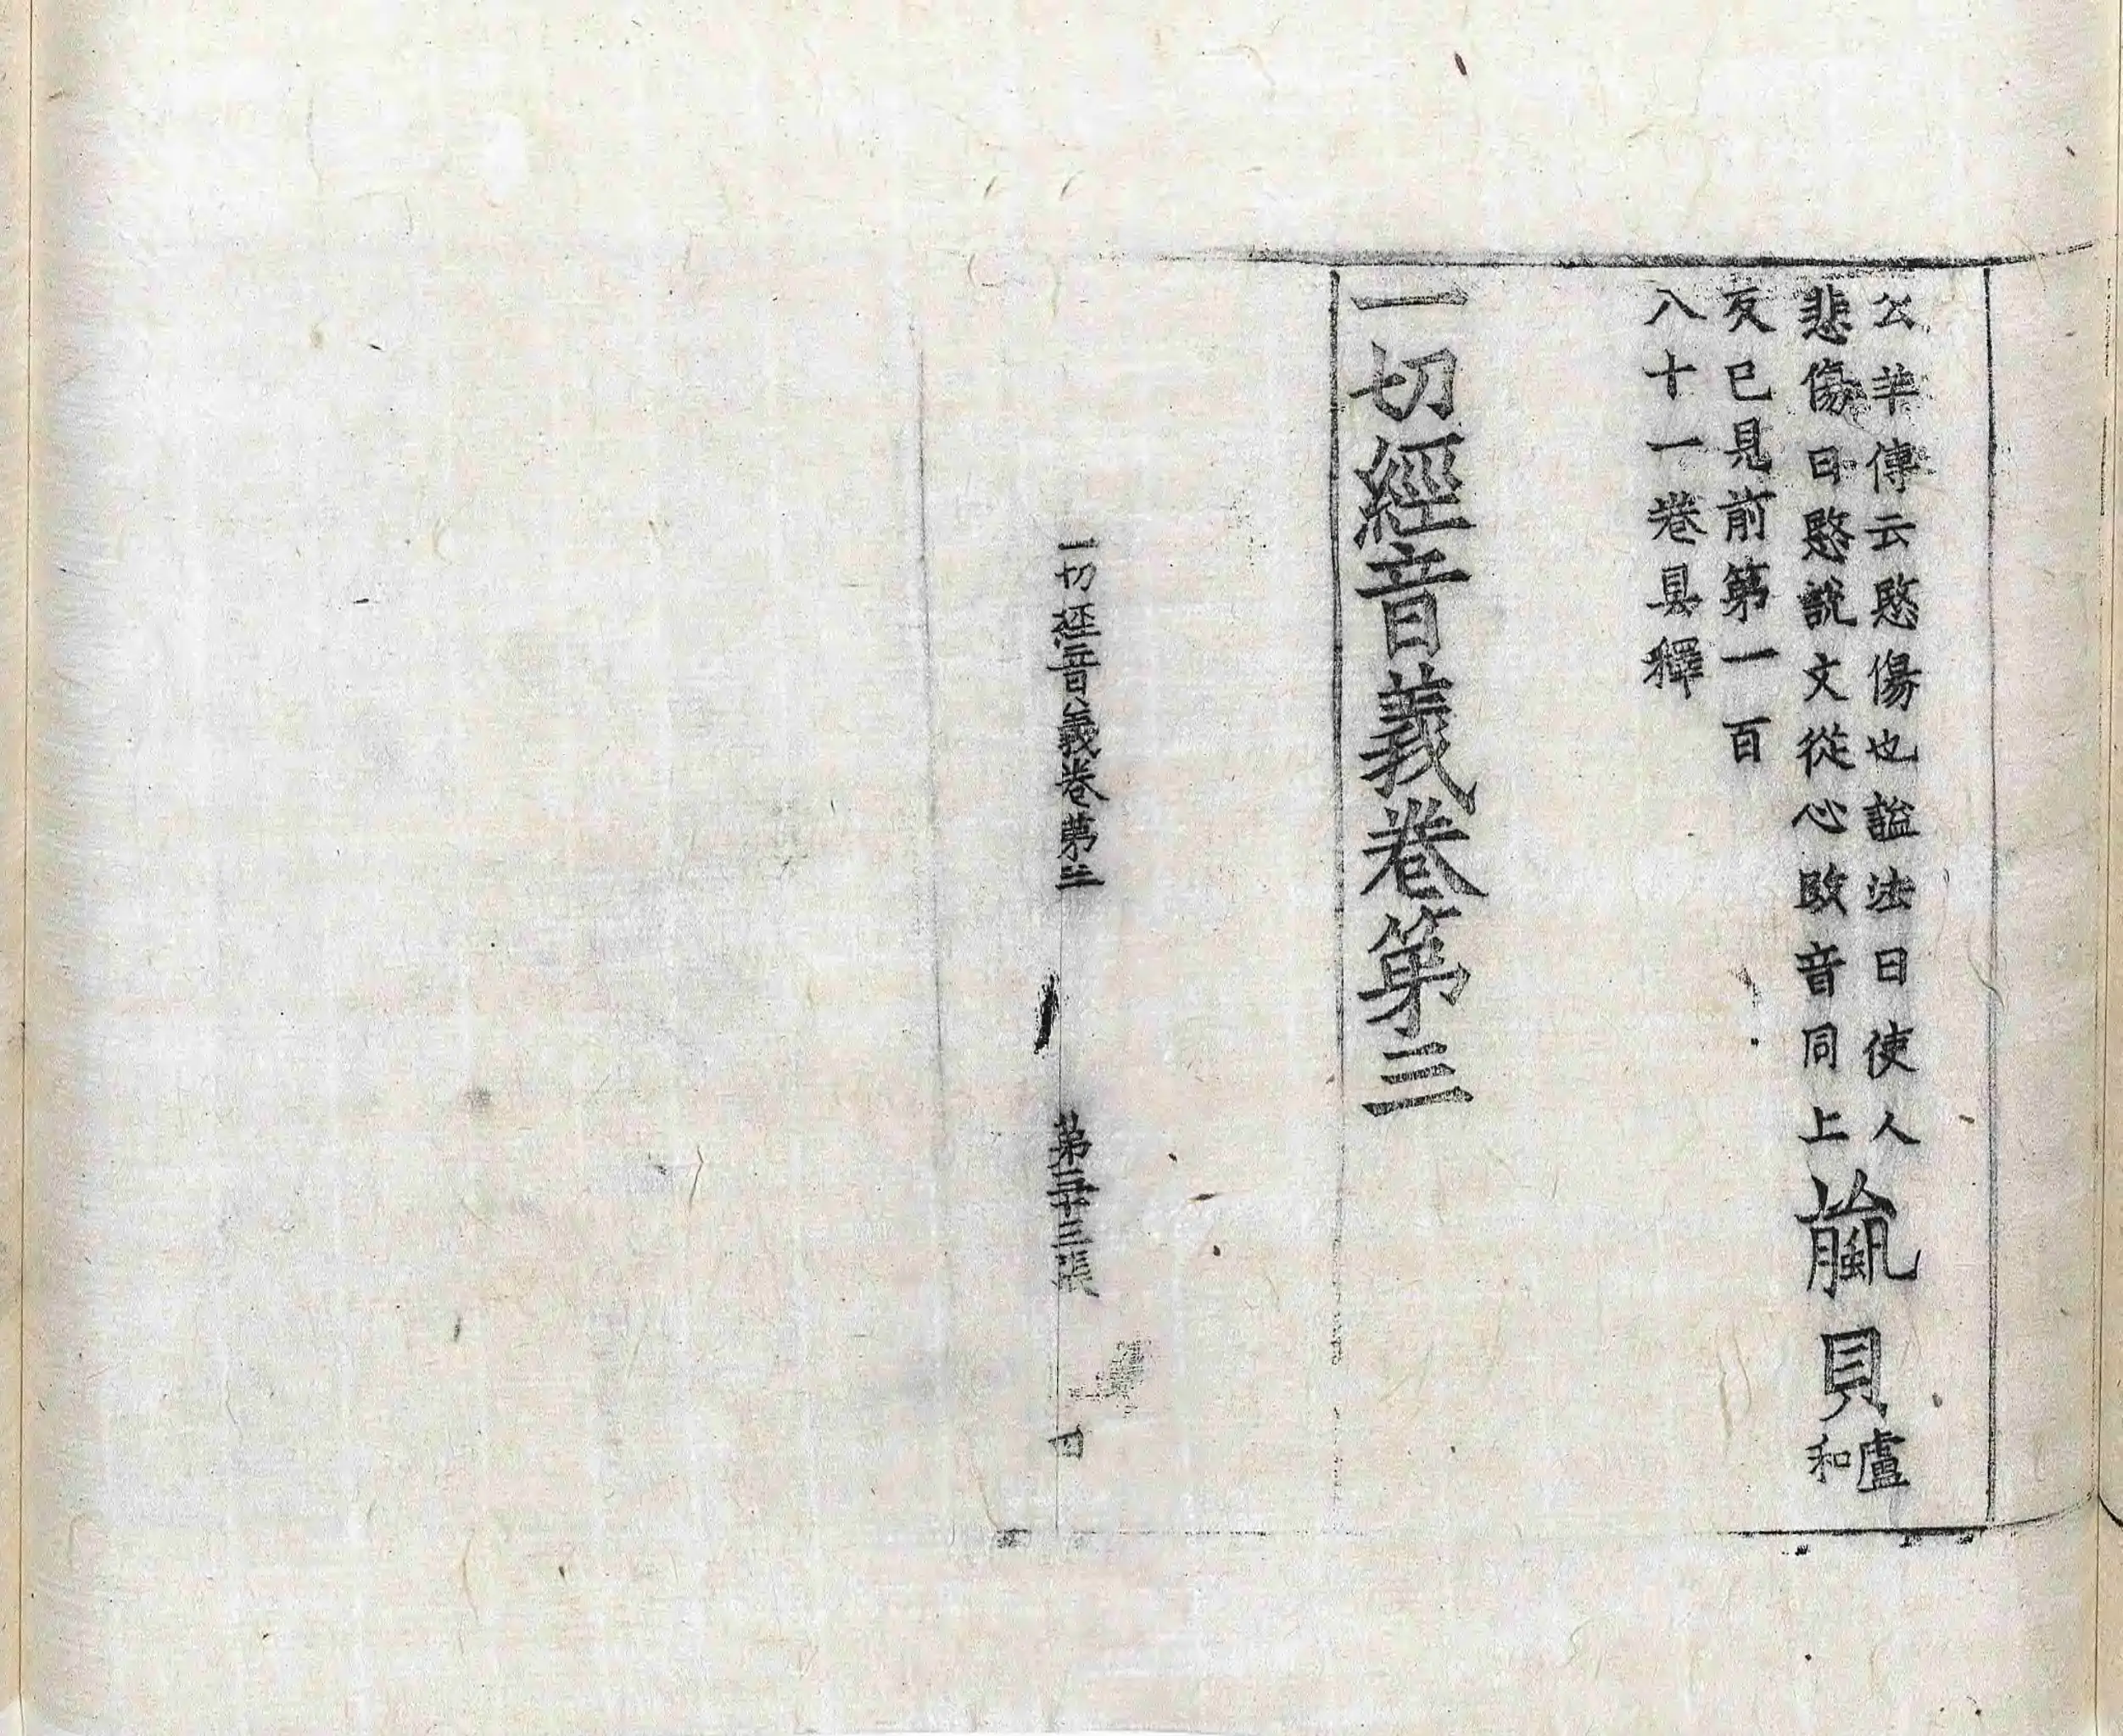 公羊傳云愍傷也謚法曰使人
悲傷曰愍說文從心敃音同上
蠃貝
盧
和
反已見前第一百
八十一卷具釋
一切經音義卷第三
一切經音義卷第三
第二十三張